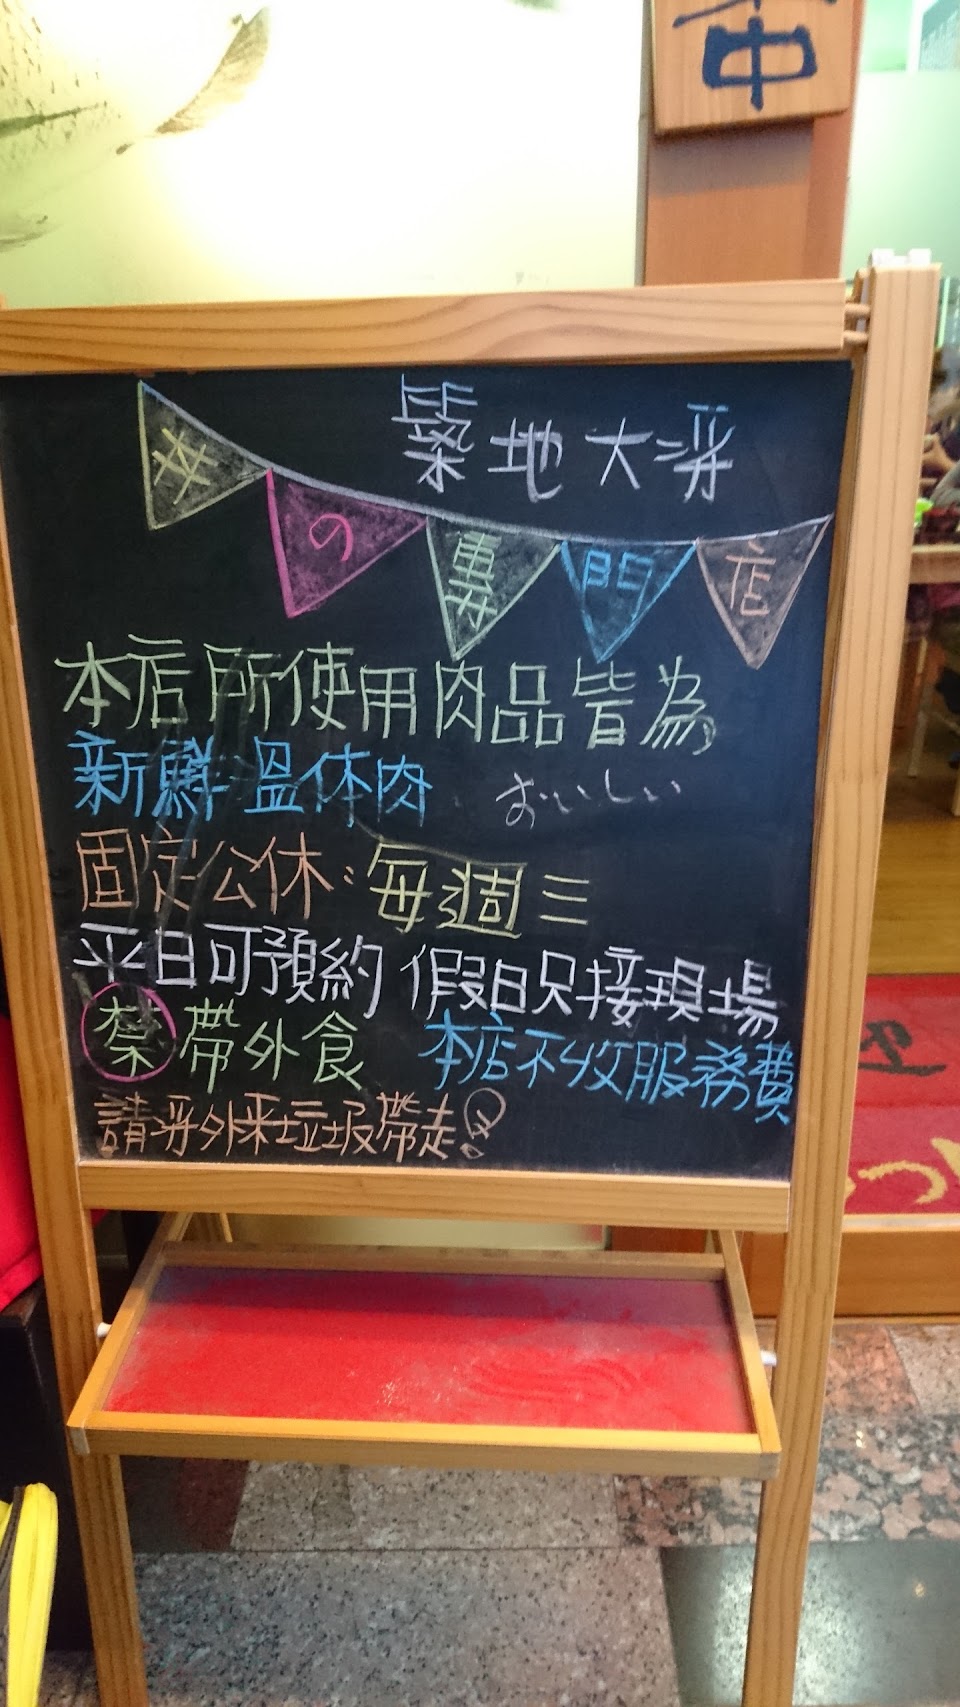 築地大洋
丼の專門店
本店所使用肉品皆為
新鮮溫体肉 おいしい
固定公休:每週三
平日可預約 假日只接現場
禁帶外食 本店不收服務費
請將外來垃圾帶走!